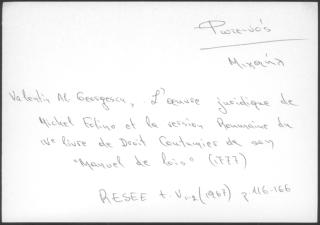 Φωτεινός
Μιχαήλ
Valentin Al. Georgescu, L'œuvre juridique de
Michel Fotino et la version Roumaine du
IVe livre de Droit Coutumier de son
"Manuel de lois" (1777)
RESEE t. V 1-2 (1967) p. 116-166